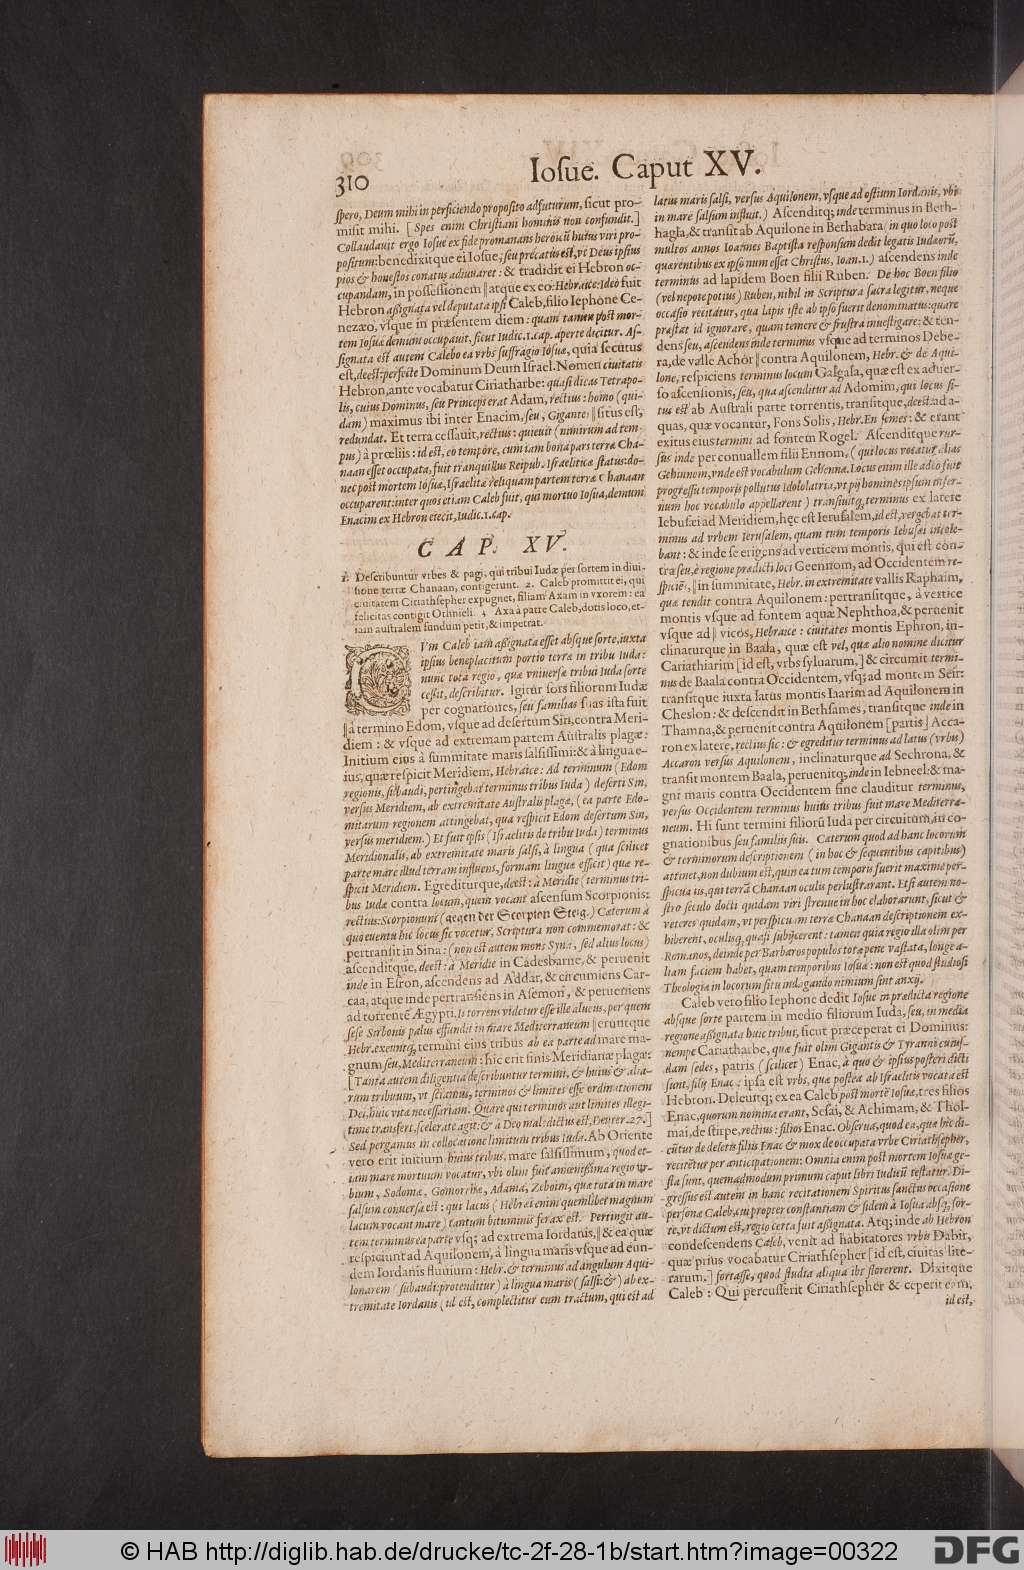 310
Iosue. Caput XV.
spero, Deum mihi in perficiendo proposito adfuturum, sicut pro-
misit mihi. [Spes enim Christiani hominis non confundit.]
Collaudauit ergo Iosue ex fide promanans heroicū huius viri pro-
positum: benedixitque ei Iosue, seu precatus est, vt Deus ipsius
pios & honestos conatus adiuuaret: & tradidit ei Hebron oc-
cupandam, in possessionem ‖ atque ex eo: Hebraice: Ideo fuit
Hebron assignata vel deputata ipsi Caleb, filio Iephone Ce-
nezæo, vsque in præsentem diem: quam tamen post mor-
tem Iosuæ demum occupauit, sicut Iudic. 1. cap. aperte dicitur. As-
signata est autem Calebo ea vrbs suffragio Iosuæ, quia secutus
est, deest: perfecte Dominum Deum Israel. Nomen ciuitatis
Hebron, ante vocabatur Ciriatharbe: quasi dicas Tetrapo-
lis, cuius Dominus, seu Princeps erat Adam, rectius: homo (qui-
dam) maximus ibi inter Enacim, seu, Gigante: ‖ situs est,
redundat. Et terra cessauit, rectius: quieuit (nimirum ad tem-
pus) à prœliis: id est, eo tempore, cum iam bona pars terræ Cha-
naan esset occupata, fuit tranquillus Reipub. Israeliticæ status: do-
nec post mortem Iosuæ, Israelitæ reliquam partem terræ Chanaan
occuparent: inter quos etiam Caleb fuit, qui mortuo Iosua, demum
Enacim ex Hebron eiecit, Iudic. 1. cap.
CAP. XV.
1. Describuntur vrbes & pagi, qui tribui Iudæ per sortem in diui-
sione terræ Chanaan, contigerunt. 2. Caleb promittit ei, qui
ciuitatem Ciriathsepher expugnet, filiam Axam in vxorem: ea
felicitas contigit Othnieli. 4 Axa à patre Caleb, dotis loco, et-
iam australem fundum petit, & impetrat.
CVm Caleb iam assignata esset absque sorte, iuxta
ipsius beneplacitum portio terræ in tribu Iuda:
nunc tota regio, quæ vniuersæ tribui Iuda sorte
cessit, describitur. Igitur sors filiorum Iudæ
per cognationes, seu familias suas ista fuit
‖ à termino Edom, vsque ad desertum Sin, contra Meri-
diem: & vsque ad extremam partem Australis plagæ:
Initium eius à summitate maris salsissimi: & à lingua e-
ius, quæ respicit Meridiem, Hebraice: Ad terminum (Edom
regionis, subaudi, pertingebat terminus tribus Iuda) deserti Sin,
versus Meridiem, ab extremitate Australis plagæ, (ea parte Edo-
mitarum regionem attingebat, qua respicit Edom desertum Sin,
versus meridiem.) Et fuit ipsis (Israelitis de tribu Iuda) terminus
Meridionalis, ab extremitate maris salsi, à lingua (qua scilicet
parte mare illud terram influens, formam linguæ efficit) quæ re-
spicit Meridiem. Egrediturque, deest: à Meridie (terminus tri-
bus Iudæ contra locum, quem vocant ascensum Scorpionis:
rectius: Scorpionum (gegen der Scorpion Steig.) Cæterum à
quo euentu hic locus sic vocetur, Scriptura non commemorat: &
pertransit in Sina: (non est autem mons Syna, sed alius locus)
ascenditque, deest: à Meridie in Cadesbarne, & peruenit
inde in Esron, ascendens ad Addar, & circumiens Car-
caa, atque inde pertransiens in Asemon, & perueniens
ad torrentē Ægypti. Is torrens videtur esse ille alueus, per quem
sese Sirbonis palus effundit in mare Mediterraneum ‖ eruntque
Hebr. exeuntq; termini eius tribus ab ea parte ad mare ma-
gnum seu, Mediterraneum: hic erit finis Meridianæ plagæ:
[Tanta autem diligentia describuntur termini, & huius & alia-
rum tribuum, vt sciamus, terminos & limites esse ordinationem
Dei, huic vitæ necessariam. Quare qui terminos aut limites illegi-
time transfert, scelerate agit: & à Deo maledictus est, Deuter. 27.]
Sed pergamus in collocatione limitum tribus Iuda. Ab Oriente
vero erit initium huius tribus, mare salsissimum, quod et-
iam mare mortuum vocatur, vbi olim fuit amœnissima regio vr-
bium, Sodomæ, Gomorrhæ, Adama, Zeboim, quæ tota in mare
salsum conuersa est: qui lacus (Hebræi enim quemlibet magnum
lacum vocant mare) tantum bituminis ferax est. Pertingit au-
tem terminus ea parte vsq; ad extrema Iordanis, ‖ & ea quæ
respiciunt ad Aquilonem, à lingua maris vsque ad eun-
dem Iordanis fluuium: Hebr. & terminus ad angulum Aqui-
lonarem (subaudi: protenditur) à lingua maris (salsi: &) ab ex-
tremitate Iordanis (id est, complectitur eum tractum, qui est ad
latus maris salsi, versus Aquilonem, vsque ad ostium Iordanis, vbi
in mare salsum influit.) Ascenditq; inde terminus in Beth-
hagla, & transit ab Aquilone in Bethabara (in quo loco post
multos annos Ioannes Baptista responsum dedit legatis Iudæorū,
quærentibus ex ipso num esset Christus, Ioan. 1.) ascendens inde
terminus ad lapidem Boen filii Ruben. De hoc Boen filio
(vel nepote potius) Ruben, nihil in Scriptura sacra legitur, neque
occasio recitatur, qua lapis iste ab ipso fuerit denominatus: quare
præstat id ignorare, quam temere & frustra inuestigare: & ten-
dens seu, ascendens inde terminus vsque ad terminos Debe-
ra, de valle Achor ‖ contra Aquilonem, Hebr. & de Aqui-
lone, respiciens terminus locum Galgala, quæ est ex aduer-
so ascensionis, seu, qua ascenditur ad Adomim, qui locus si-
tus est ab Australi parte torrentis, transitque, deest: ad a-
quas, quæ vocantur, Fons Solis, Hebr. En semes: & erunt
exitus eius termini ad fontem Rogel. Ascenditque rur-
sus inde per conuallem filii Ennom, (qui locus vocatur alias
Gehinnem, vnde est vocabulum Gehenna. Locus enim ille adeo fuit
progressu temporis pollutus Idololatria, vt pij homines ipsum infer-
num hoc vocabulo appellarent) transiuitq; terminus ex latere
Iebusæi ad Meridiem, hęc est Ierusalem, id est, vergebat ter-
minus ad vrbem Ierusalem, quam tum temporis Iebusæi incole-
bant: & inde se erigens ad verticem montis, qui est con-
tra seu, è regione prædicti loci Geennom, ad Occidentem re-
spiciē, ‖ in summitate, Hebr. in extremitate vallis Raphaim,
quæ tendit contra Aquilonem: pertransitque, à vertice
montis vsque ad fontem aquæ Nephthoa, & peruenit
vsque ad ‖ vicos, Hebraice: ciuitates montis Ephron, in-
clinaturque in Baala, quæ est vel, quæ alio nomine dicitur
Cariathiarim [id est, vrbs syluarum,] & circumit termi-
nus de Baala contra Occidentem, vsq; ad montem Seir:
transitque iuxta latus montis Iiarim ad Aquilonem in
Cheslon: & descendit in Bethsames, transitque inde in
Thamna, & peruenit contra Aquilonem [partis] Acca-
ron ex latere, rectius sic: & egreditur terminus ad latus (vrbis)
Accaron versus Aquilonem, inclinaturque ad Sechrona, &
transit montem Baala, peruenitq; inde in Iebneel: & ma-
gni maris contra Occidentem fine clauditur terminus,
versus Occidentem terminus huius tribus fuit mare Mediterra-
neum. Hi sunt termini filiorū Iuda per circuitum, in co-
gnationibus seu familiis suis. Cæterum quod ad hanc locorum
& terminorum descriptionem (in hoc & sequentibus capitibus)
attinet, non dubium est, quin ea tum temporis fuerit maxime per-
spicua iis, qui terrā Chanaan oculis perlustrarant. Etsi autem no-
stro seculo docti quidam viri strenue in hoc elaborarunt, sicut &
veteres quidam, vt perspicuam terræ Chanaan descriptionem ex-
hiberent, oculisq; quasi subijcerent: tamen quia regio illa olim per
Romanos, deinde per Barbaros populos tota pene vastata, longe a-
liam faciem habet, quam temporibus Iosuæ: non est quod studiosi
Theologiæ in locorum situ indagando nimium sint anxij.
Caleb vero filio Iephone dedit Iosue in prædicta regione
absque sorte partem in medio filiorum Iuda, seu, in media
regione assignata huic tribui, sicut præceperat ei Dominus:
nempe Cariatharbe, quæ fuit olim Gigantis & Tyranni cuius-
dam sedes, patris (scilicet) Enac, à quo & ipsius posteri dicti
sunt, filij Enac: ipsa est vrbs, quæ postea ab Israelitis vocata est
Hebron. Deleuitq; ex ea Caleb post mortē Iosuæ, tres filios
Enac, quorum nomina erant, Sesai, & Achimam, & Thol-
mai, de stirpe, rectius: filios Enac. Obserua, quod ea, quæ hīc di-
cūtur de deletis filiis Enac & mox de occupata vrbe Ciriathsepher,
recitētur per anticipationem: Omnia enim post mortem Iosuæ ge-
sta sunt, quemadmodum primum caput libri Iudicū testatur. Di-
gressus est autem in hanc recitationem Spiritus sanctus occasione
personæ Caleb, cui propter constantiam & fidem à Iosua absq; sor-
te, vt dictum est, regio certa fuit assignata. Atq; inde ab Hebron
condescendens Caleb, venit ad habitatores vrbis Dabir,
quæ prius vocabatur Ciriathsepher [id est, ciuitas lite-
rarum.] fortasse, quod studia aliqua ibi florerent. Dixitque
Caleb: Qui percusserit Ciriathsepher & ceperit eam,
id est,
© HAB http://diglib.hab.de/drucke/tc-2f-28-1b/start.htm?image=00322
DFG